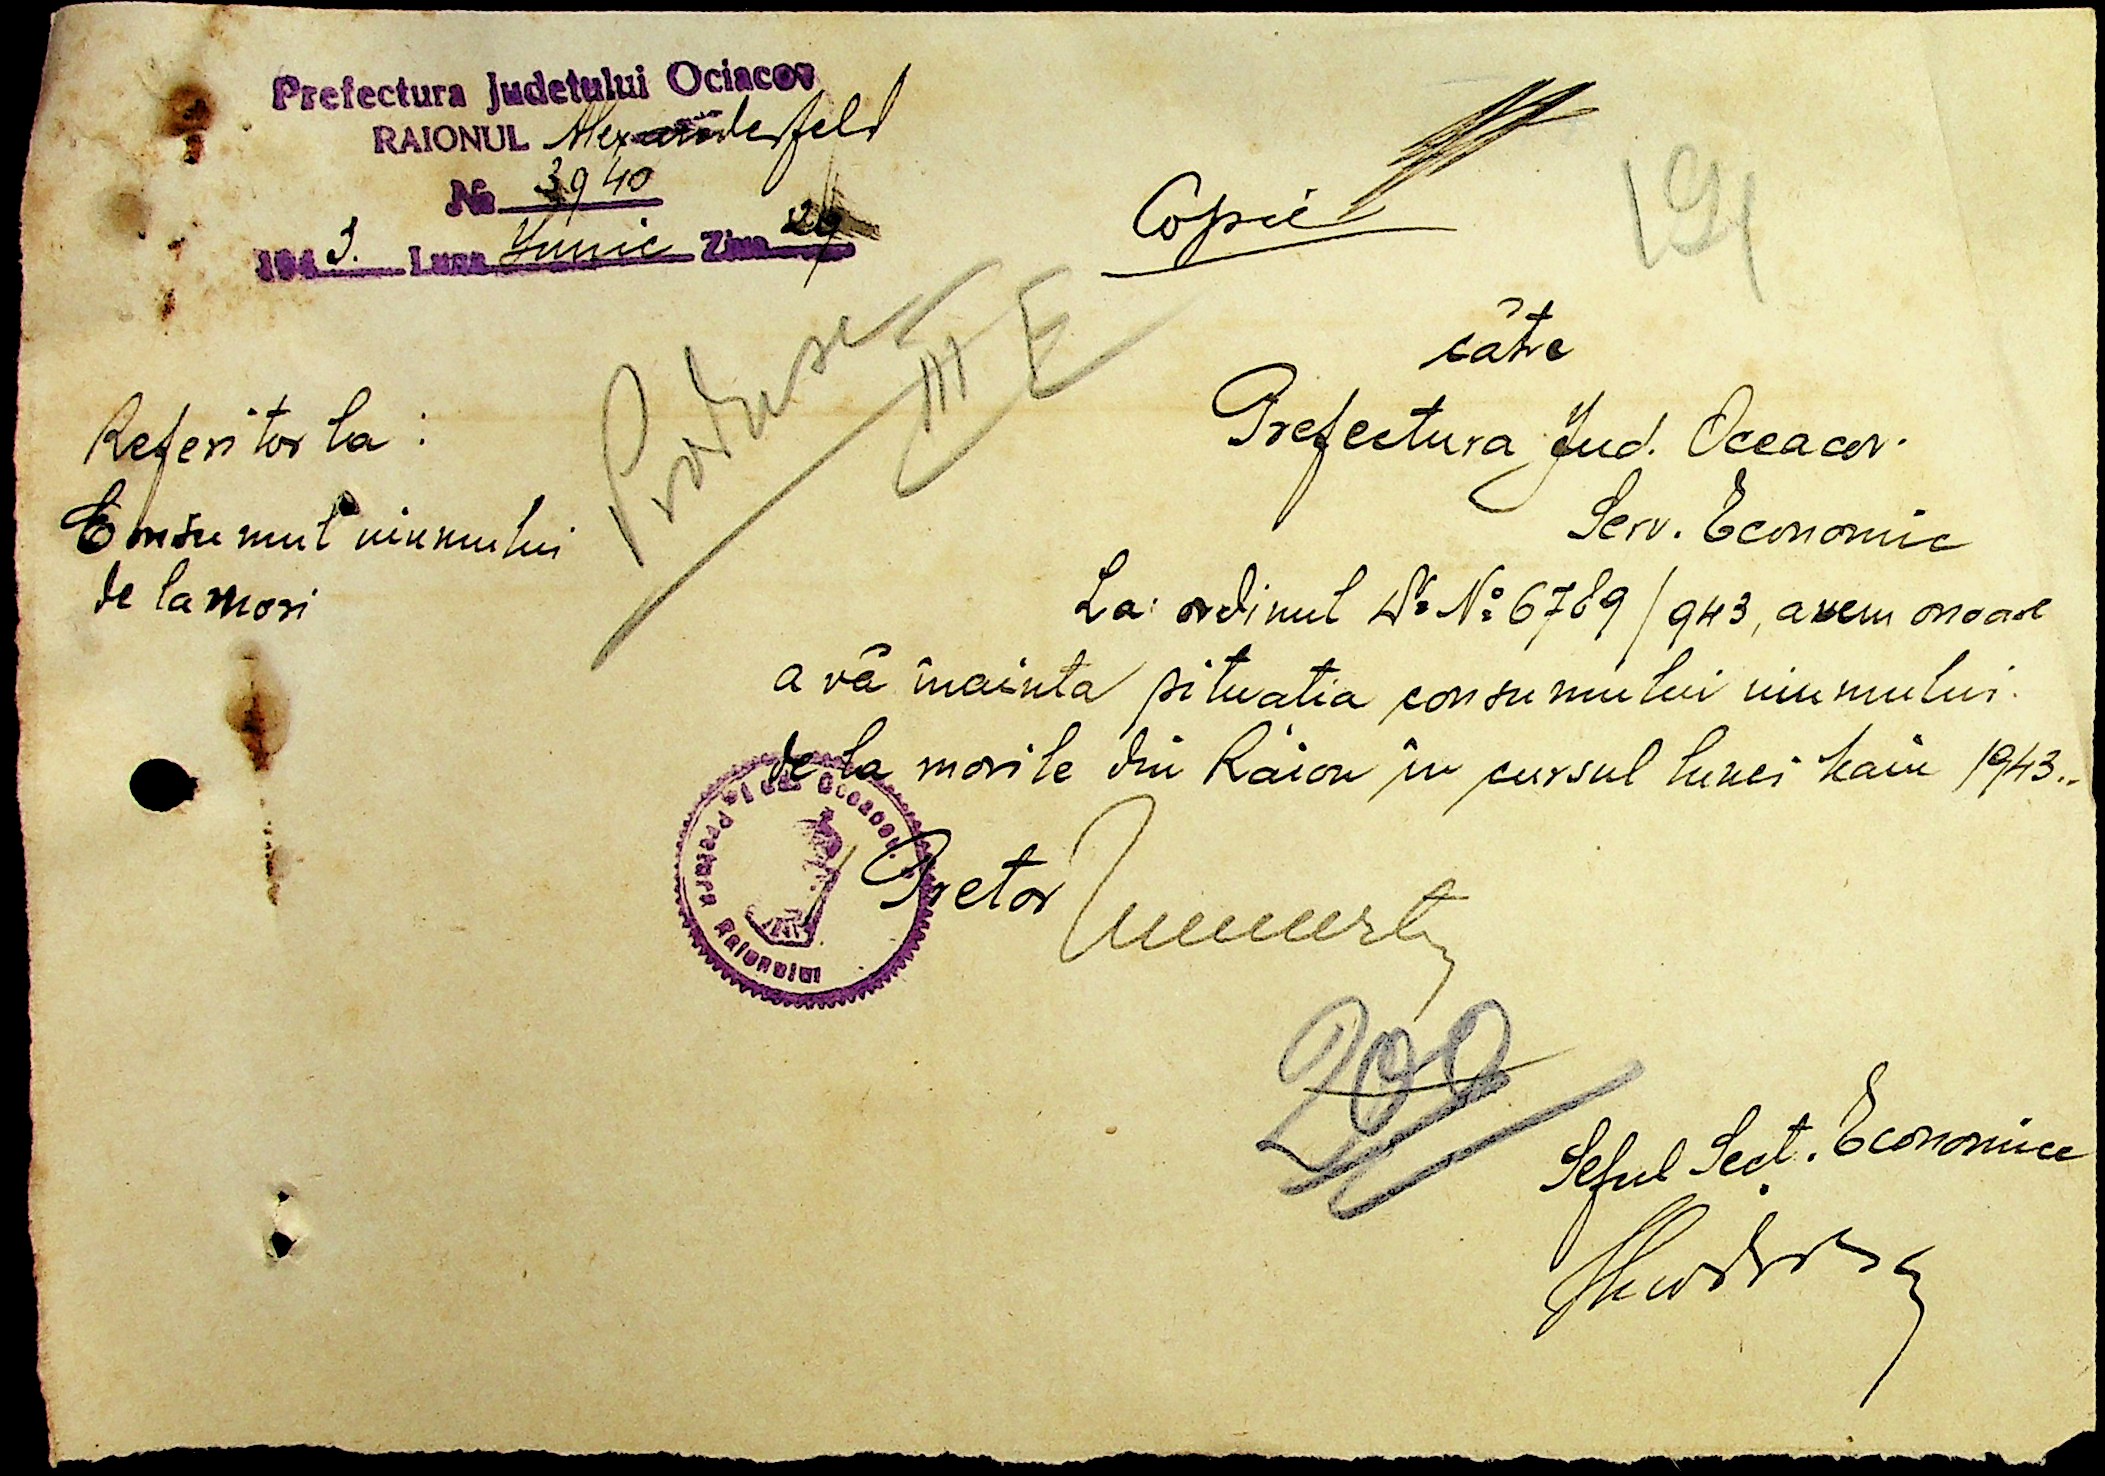 Prefectura Judetului Ociacov
RAIONUL Alexanderfeld
No 3940
1943. Luna Iunie Ziua 24
Copie
191
Produse
III E
către
Prefectura Jud. Oceacov.
Serv. Economic
Referitor la :
Consumul uiumului
de la mori
La ordinul Dv. No 6789/943, avem onoare
a vă înainta situatia consumului uiumului
de la morile din Raion în cursul lunei Maiu 1943.
Pretura Raionului
Jud. Oceacov
Pretor
200
Seful Sect. Economice